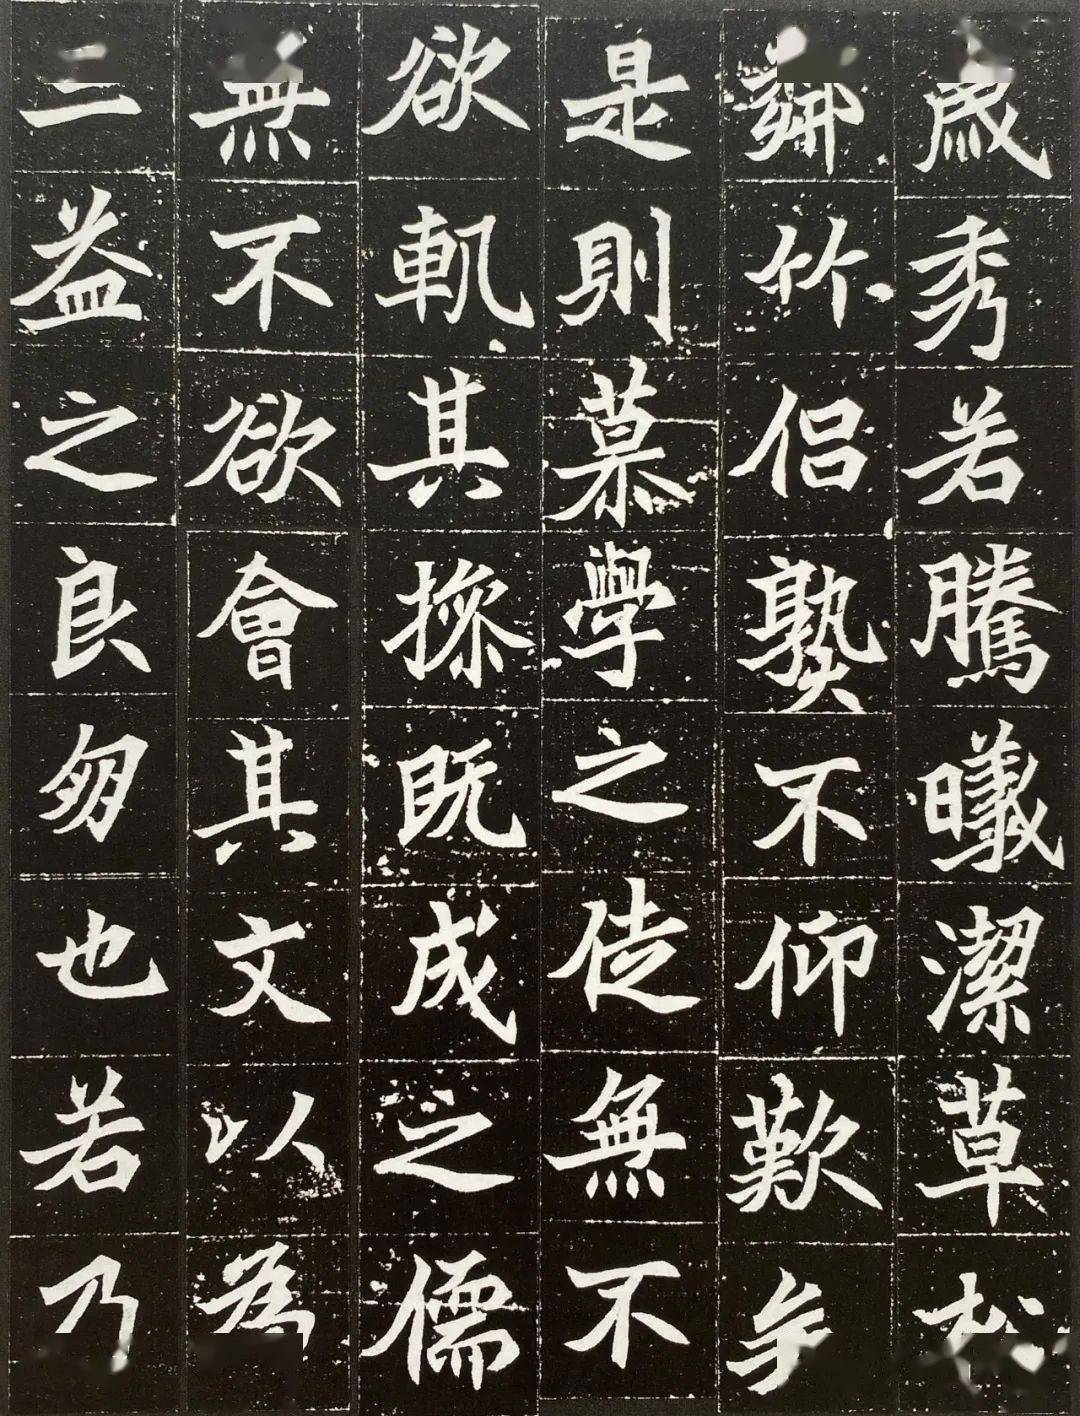 秀若騰曦潔草松
鄰竹侶孰不仰歎矣
是則慕學之徒無不
欲軌其操既成之儒
無不欲會其文以為
三益之良朋也若乃